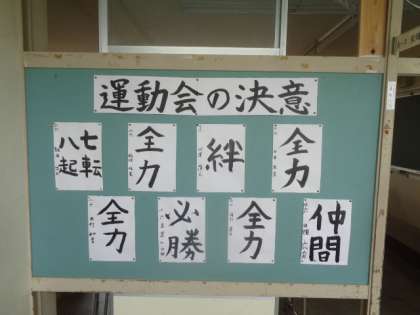 運動会の決意
七転
八起
全力
絆
全力
全力
必勝
全力
仲間